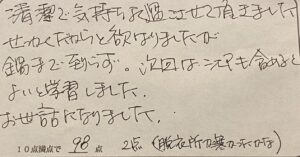 清潔で気持ちよく過ごさせて頂きました
せっかくだからと欲ばりましたが
鍋まで到らず。次回は
よいと学習しました。
お世話になりました。
10点満点で 98 点 2点 (脱衣所が